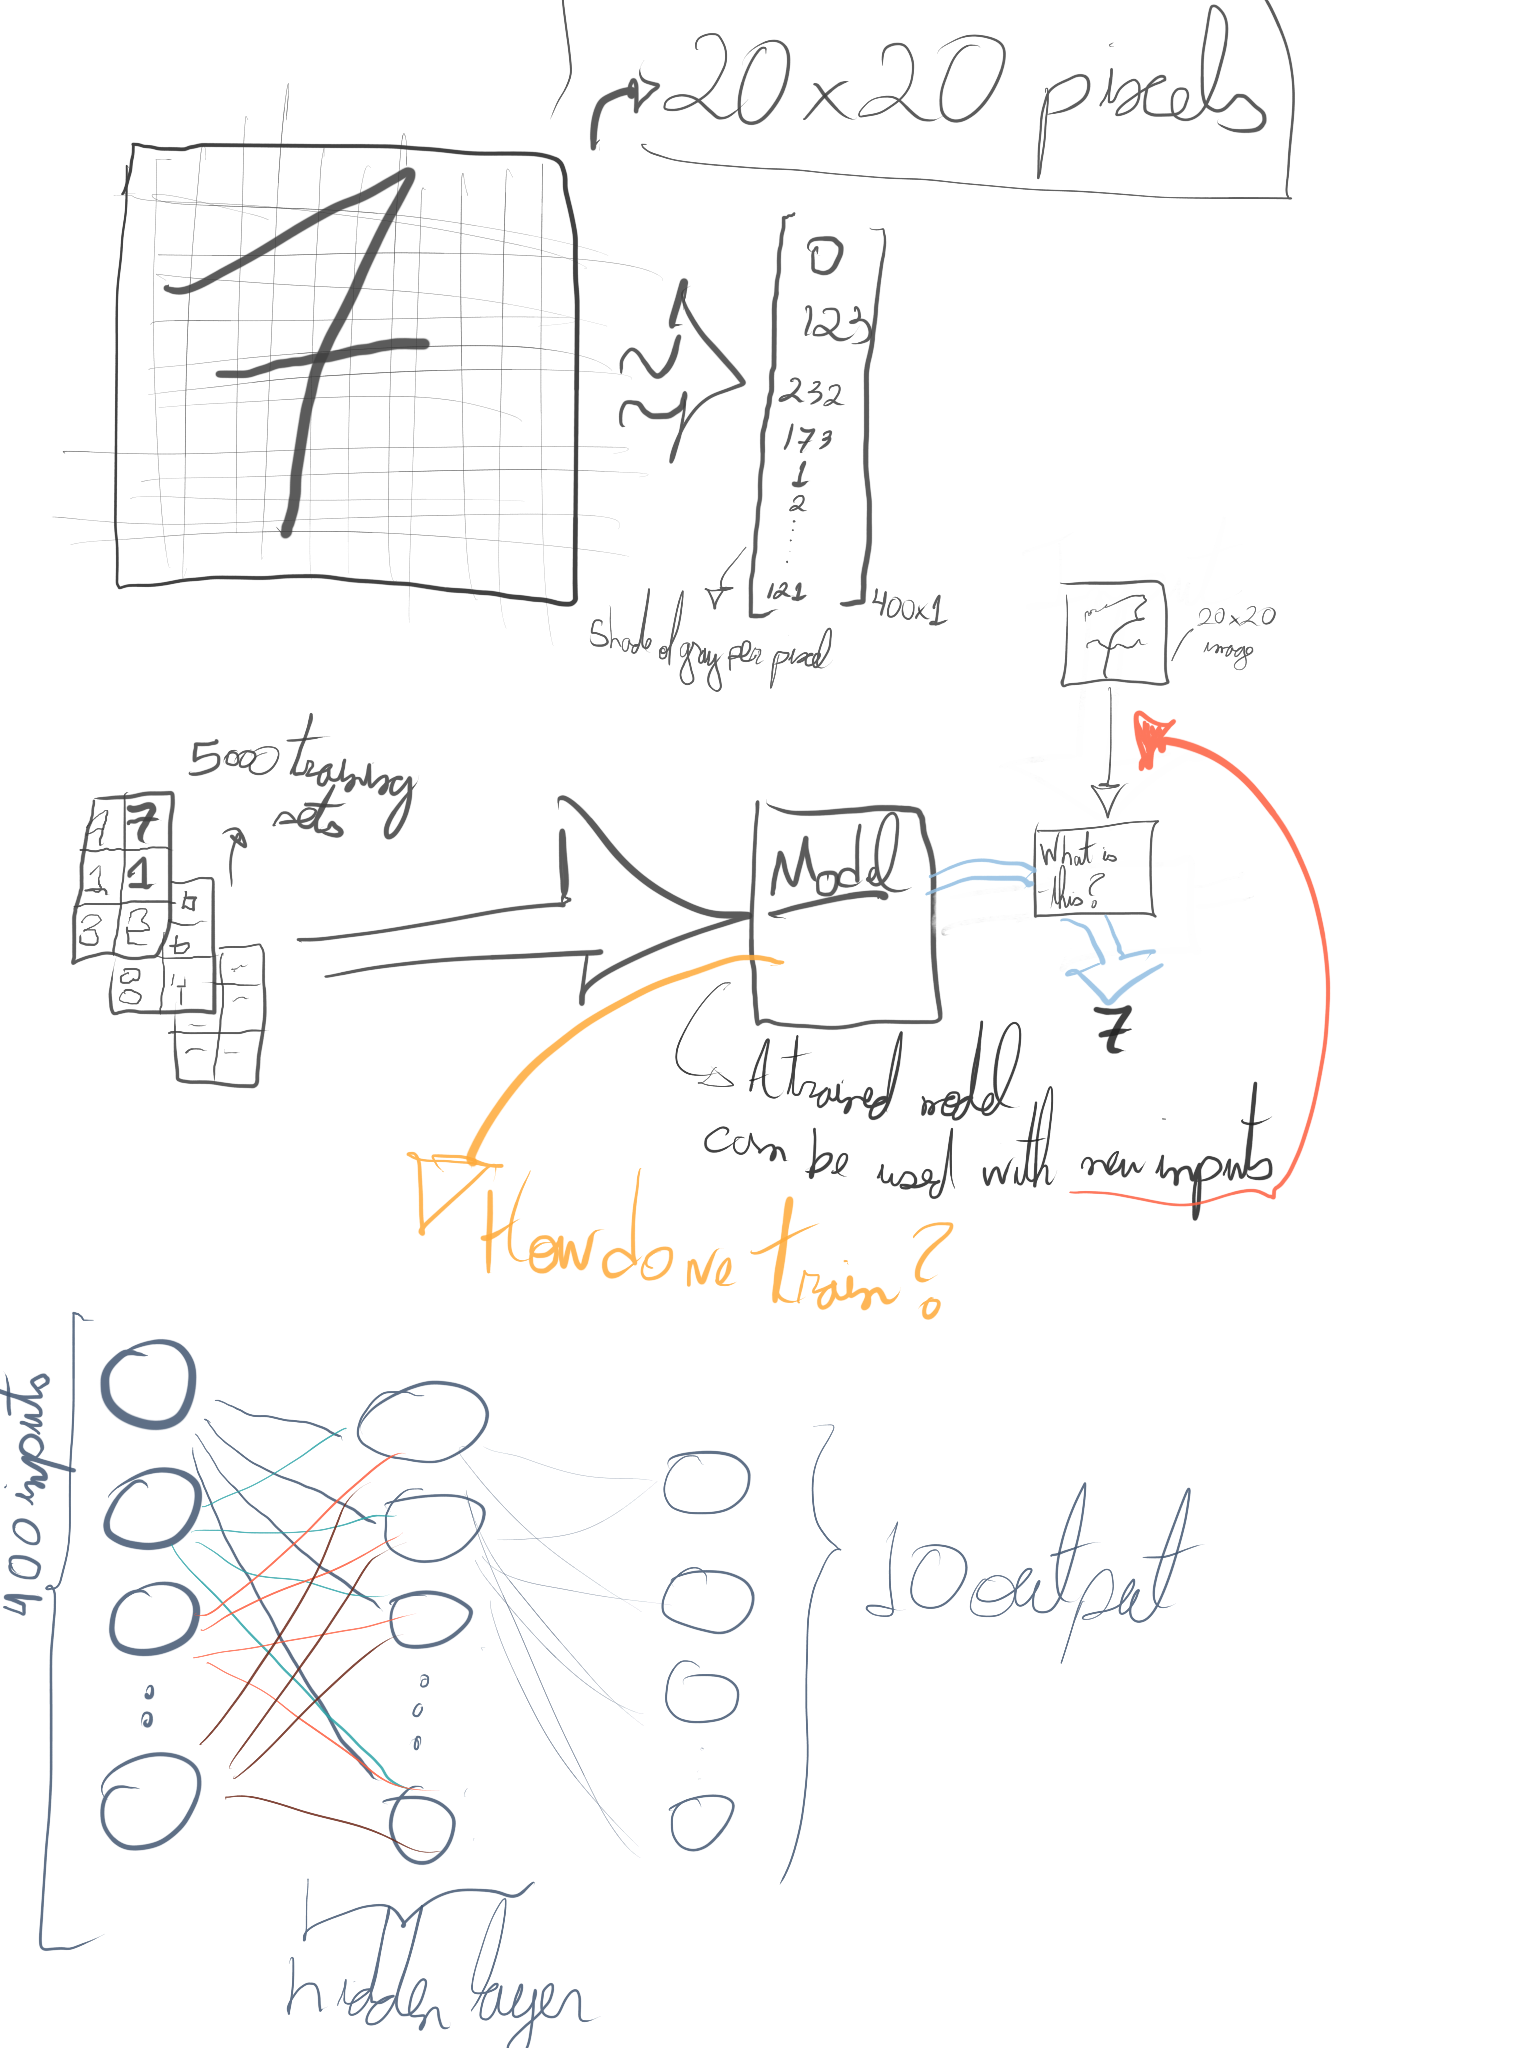 20x20 pixels
7
0
123
232
173
1
2
121
400x1
Shade of gray per pixel
20x20
image
7
5000 training
sets
7
1 1
3
Model
What is
this?
7
A trained model
can be used with new inputs
How do we train?
400 inputs
10 output
hidden layer